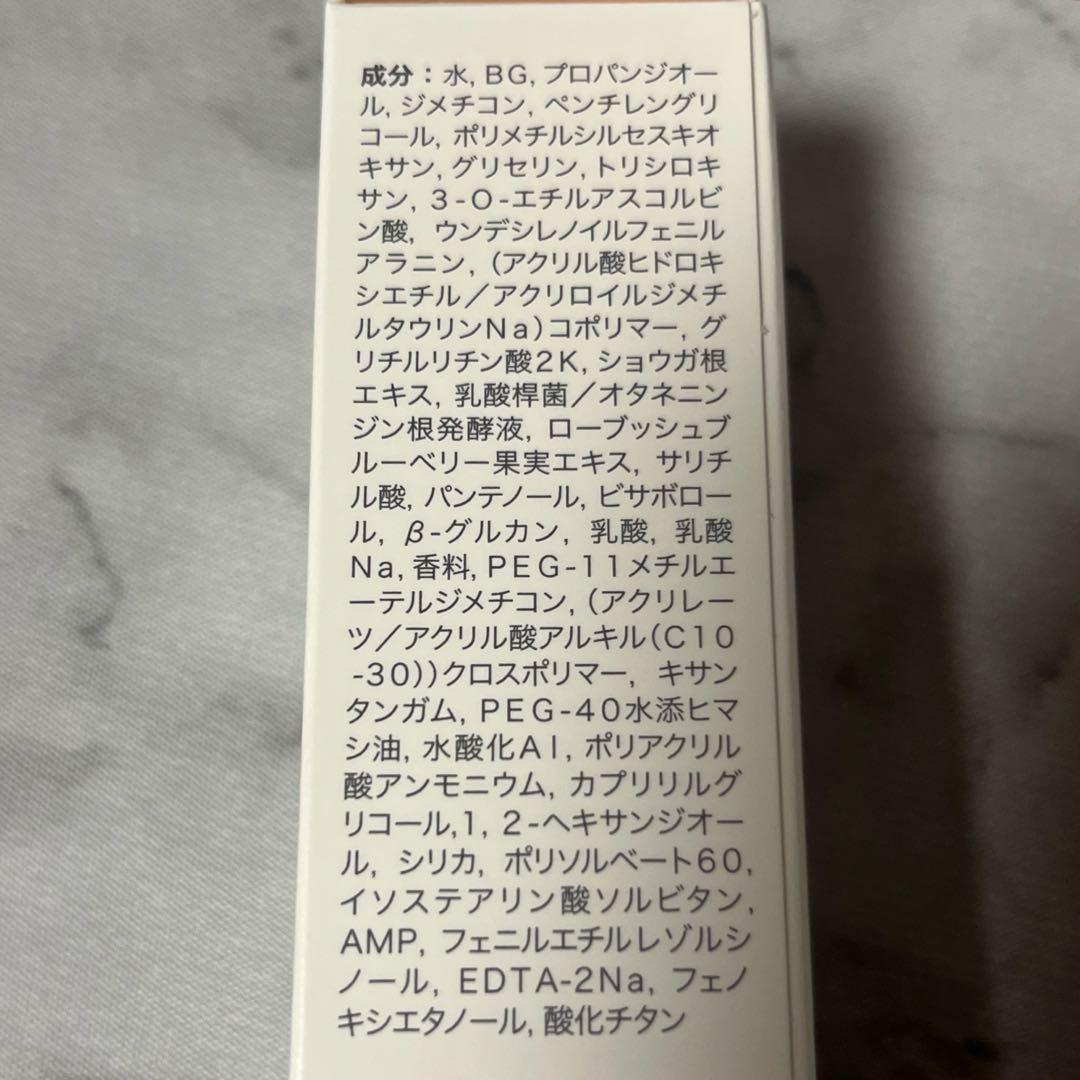 成分：水, BG, プロパンジオー
ル, ジメチコン, ペンチレングリ
コール, ポリメチルシルセスキオ
キサン, グリセリン, トリシロキ
サン, 3-O-エチルアスコルビ
ン酸, ウンデシレノイルフェニル
アラニン, (アクリル酸ヒドロキ
シエチル／アクリロイルジメチ
ルタウリンNa)コポリマー, グ
リチルリチン酸2K, ショウガ根
エキス, 乳酸桿菌／オタネニン
ジン根発酵液, ローブッシュブ
ルーベリー果実エキス, サリチ
ル酸, パンテノール, ビサボロー
ル, β-グルカン, 乳酸, 乳酸
Na, 香料, PEG-11メチルエ
ーテルジメチコン, (アクリレー
ツ／アクリル酸アルキル(C10
-30))クロスポリマー, キサン
タンガム, PEG-40水添ヒマ
シ油, 水酸化Al, ポリアクリル
酸アンモニウム, カプリリルグ
リコール,1, 2-ヘキサンジオー
ル, シリカ, ポリソルベート60,
イソステアリン酸ソルビタン,
AMP, フェニルエチルレゾルシ
ノール, EDTA-2Na, フェノ
キシエタノール, 酸化チタン